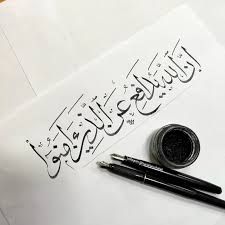 إن الله يدافع عن الذين ءامنوا